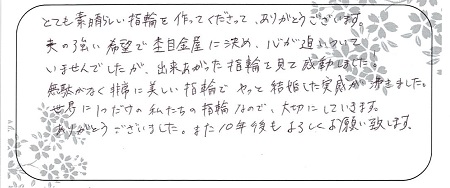 とても素晴らしい指輪を作ってくださって、ありがとうございます。
夫の強い希望で杢目金屋に決め、心が追いついて
いませんでしたが、出来あがった指輪を見て感動しました。
無駄がなく非常に美しい指輪で やっと結婚した実感が沸きました。
世界に1つだけの私たちの指輪なので、大切にしていきます。
ありがとうございました。また10年後もよろしくお願い致します。